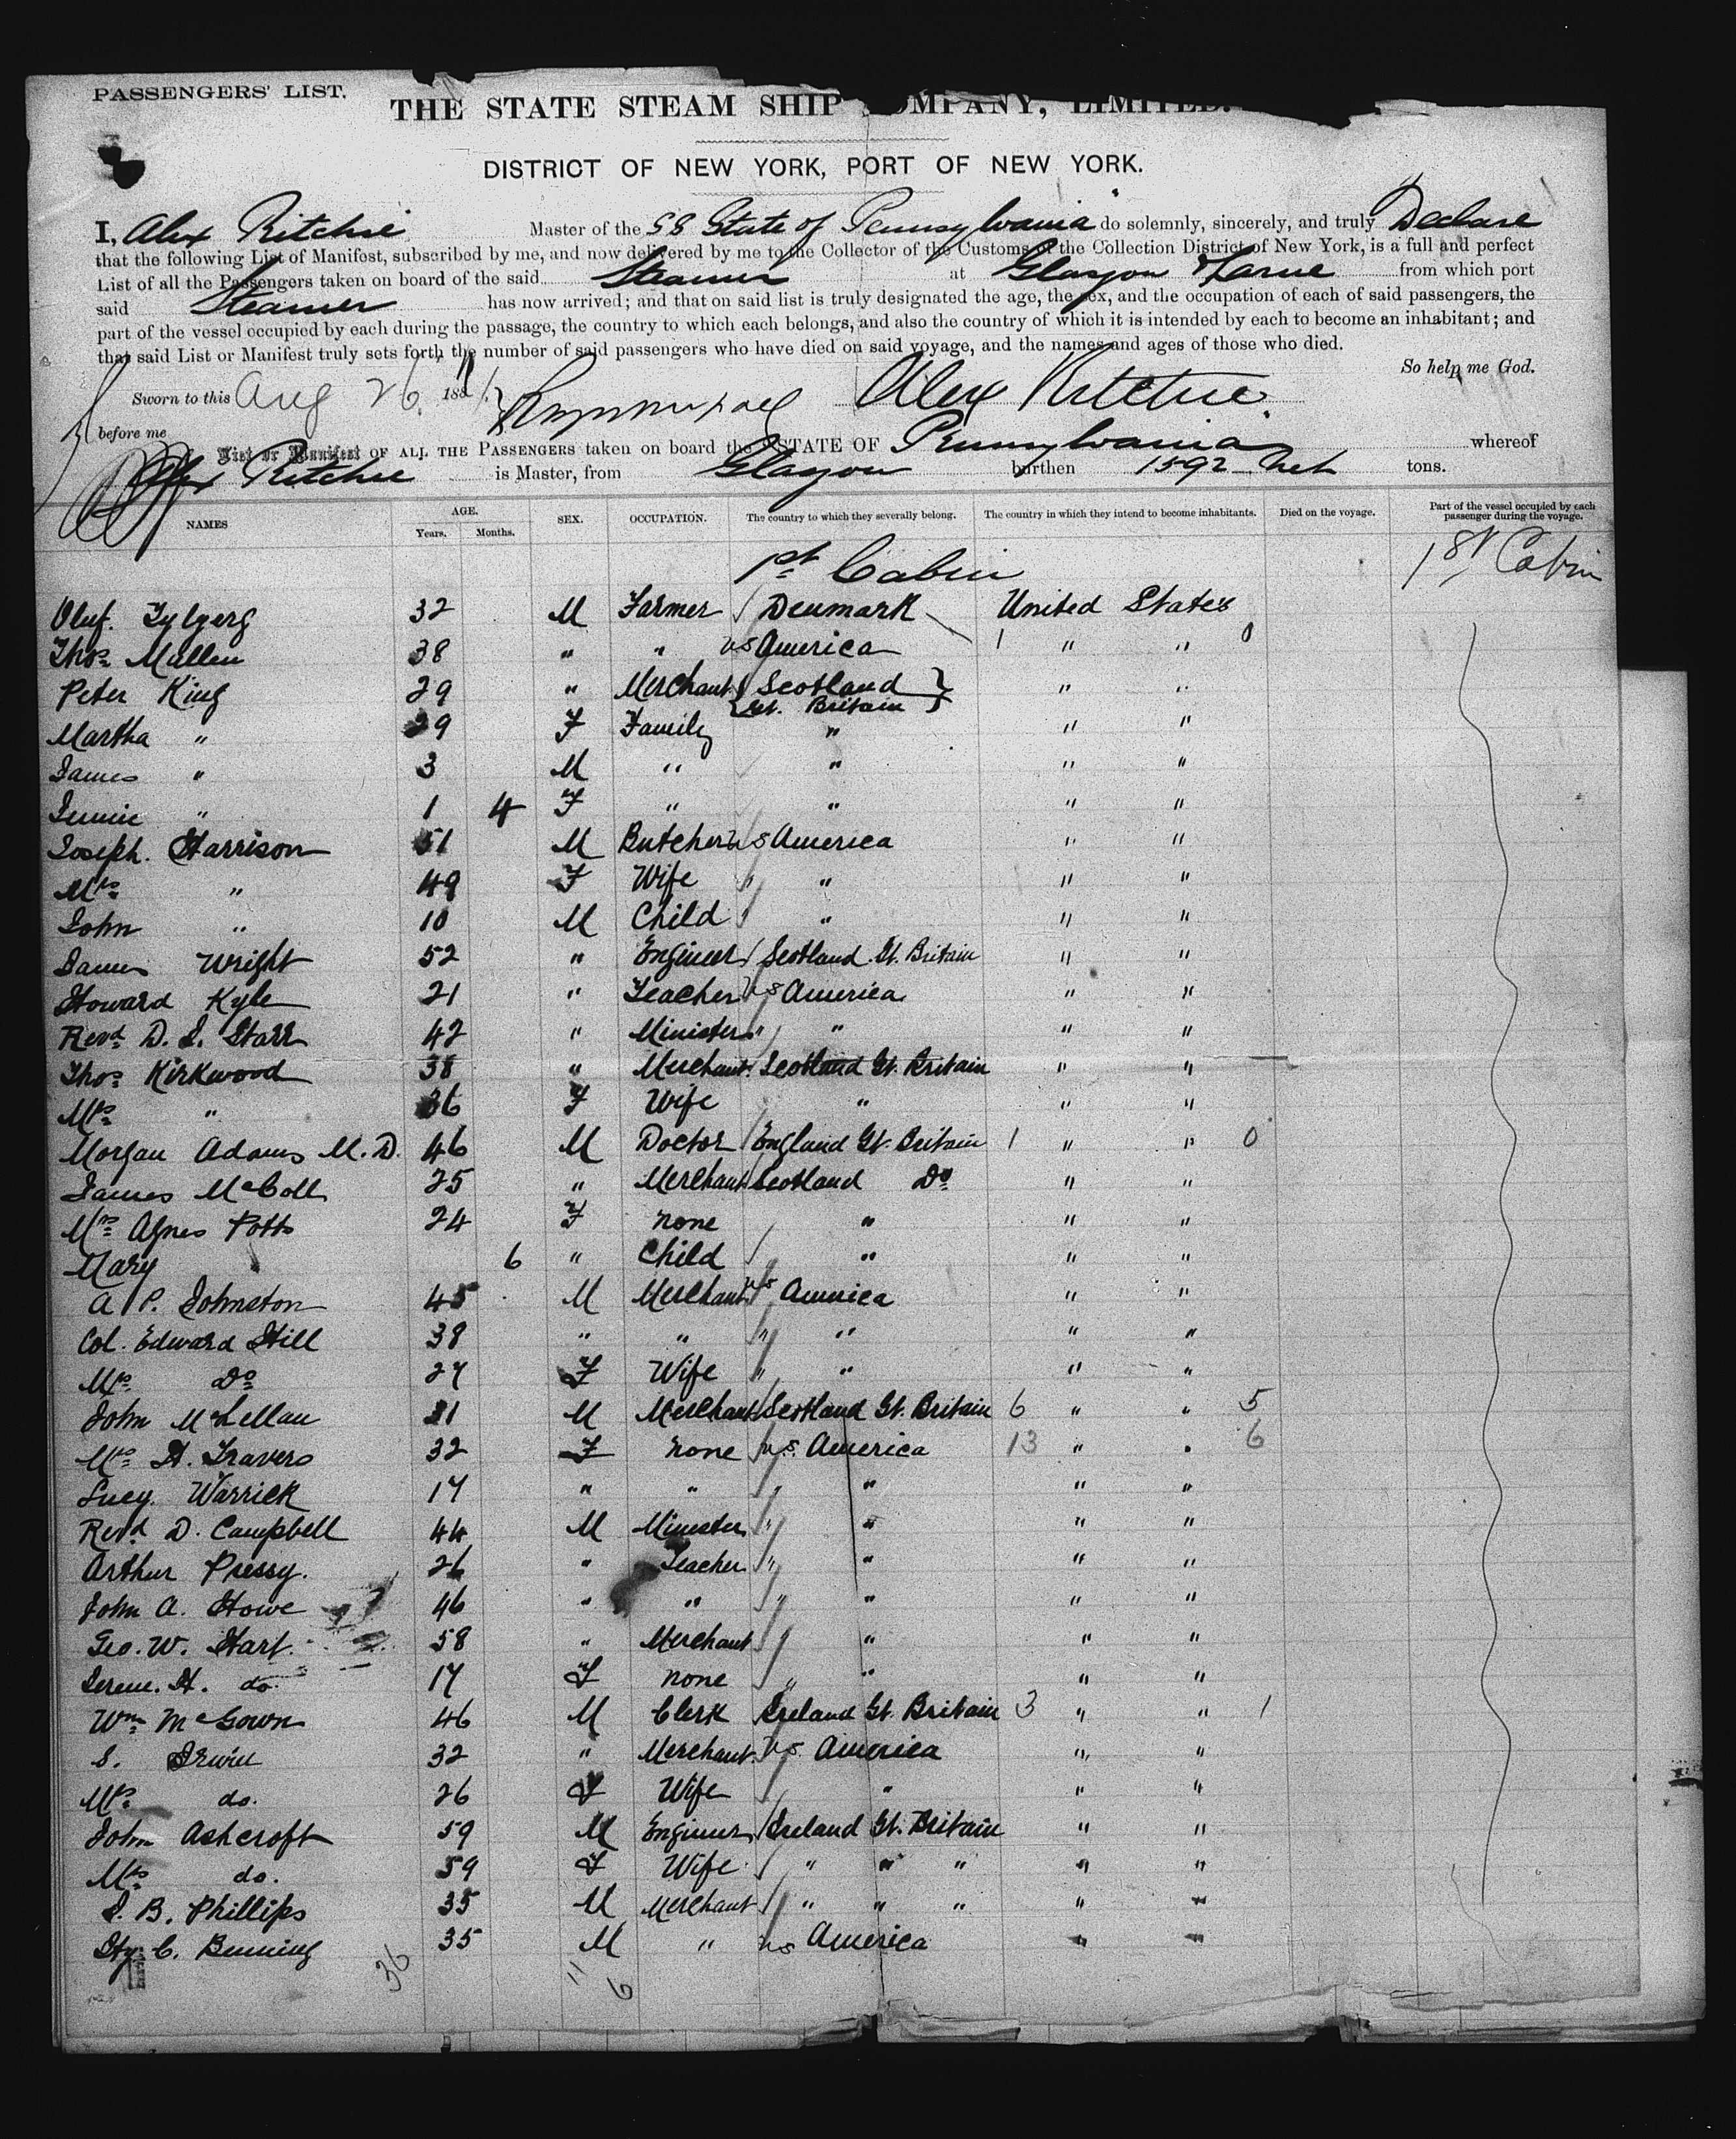 PASSENGERS' LIST.
THE STATE STEAM SHIP COMPANY, LIMITED.
DISTRICT OF NEW YORK, PORT OF NEW YORK.
I, Alex Ritchie Master of the SS State of Pennsylvania do solemnly, sincerely, and truly Declare
that the following List of Manifest, subscribed by me, and now delivered by me to the Collector of the Customs of the Collection District of New York, is a full and perfect
List of all the Passengers taken on board of the said Steamer at Glasgow & Larne from which port
said Steamer has now arrived; and that on said list is truly designated the age, the sex, and the occupation of each of said passengers, the
part of the vessel occupied by each during the passage, the country to which each belongs, and also the country of which it is intended by each to become an inhabitant; and
that said List or Manifest truly sets forth the number of said passengers who have died on said voyage, and the names and ages of those who died.
So help me God.
Sworn to this Aug 26 188 Alex Ritchie
before me
List or Manifest OF ALL THE PASSENGERS taken on board the STATE OF Pennsylvania whereof
Alex Ritchie is Master, from Glasgow burthen 1592 Net tons.
NAMES AGE. Years. Months. SEX. OCCUPATION. The country to which they severally belong. The country in which they intend to become inhabitants. Died on the voyage. Part of the vessel occupied by each passenger during the voyage.
1st Cabin 1st Cabin
Oluf. 32 M Farmer Denmark United States
Thos. Mullen 38 " " US America 1 " " 0
Peter King 29 " Merchant Scotland Gt. Britain " "
Martha " 29 F Family " " "
James " 3 M " " " "
Jennie " 1 4 F " " " "
Joseph. Harrison 51 M Butcher US America " "
Mrs " 49 F Wife " " " "
John " 10 M Child " " " "
James Wright 52 " Engineer Scotland Gt. Britain " "
Howard Kyle 21 " Teacher US America " "
Revd. D. J. Starr 42 " Minister " " " "
Thos. Kirkwood 38 " Merchant Scotland Gt. Britain " "
Mrs " 36 F Wife " " "
Morgan Adams M.D. 46 M Doctor England Gt. Britain 1 " " 0
James McColl 25 " Merchant Scotland Do " "
Mrs Agnes Potts 24 F none " " "
Mary 6 " Child " " "
A. P. Johnston 45 M Merchant US America " "
Col. Edward Hill 38 " " " " " "
Mrs Do 27 F Wife " " " "
John McLellan 31 M Merchant Scotland Gt. Britain 6 " " 5
Mrs H. Travers 32 F none U.S. America 13 " " 6
Lucy. Warrick 17 " " " " " "
Revd. D. Campbell 44 M Minister " " " "
Arthur Pressy. 26 " Teacher " " " "
John A. Howe 46 " " " " " "
Geo. W. Hart. 58 " Merchant " " "
Irene. H. do. 17 F none " " " "
Wm McGown 46 M Clerk Ireland Gt. Britain 3 " " 1
S. Irwin 32 " Merchant U.S. America " "
Mrs do. 26 F Wife " " "
John Ashcroft 59 M Engineer Ireland Gt. Britain " "
Mrs do. 59 F Wife " " " " "
J. B. Phillips 35 M Merchant " " " " "
Hy. C. 35 M " US America " "
36 11 6